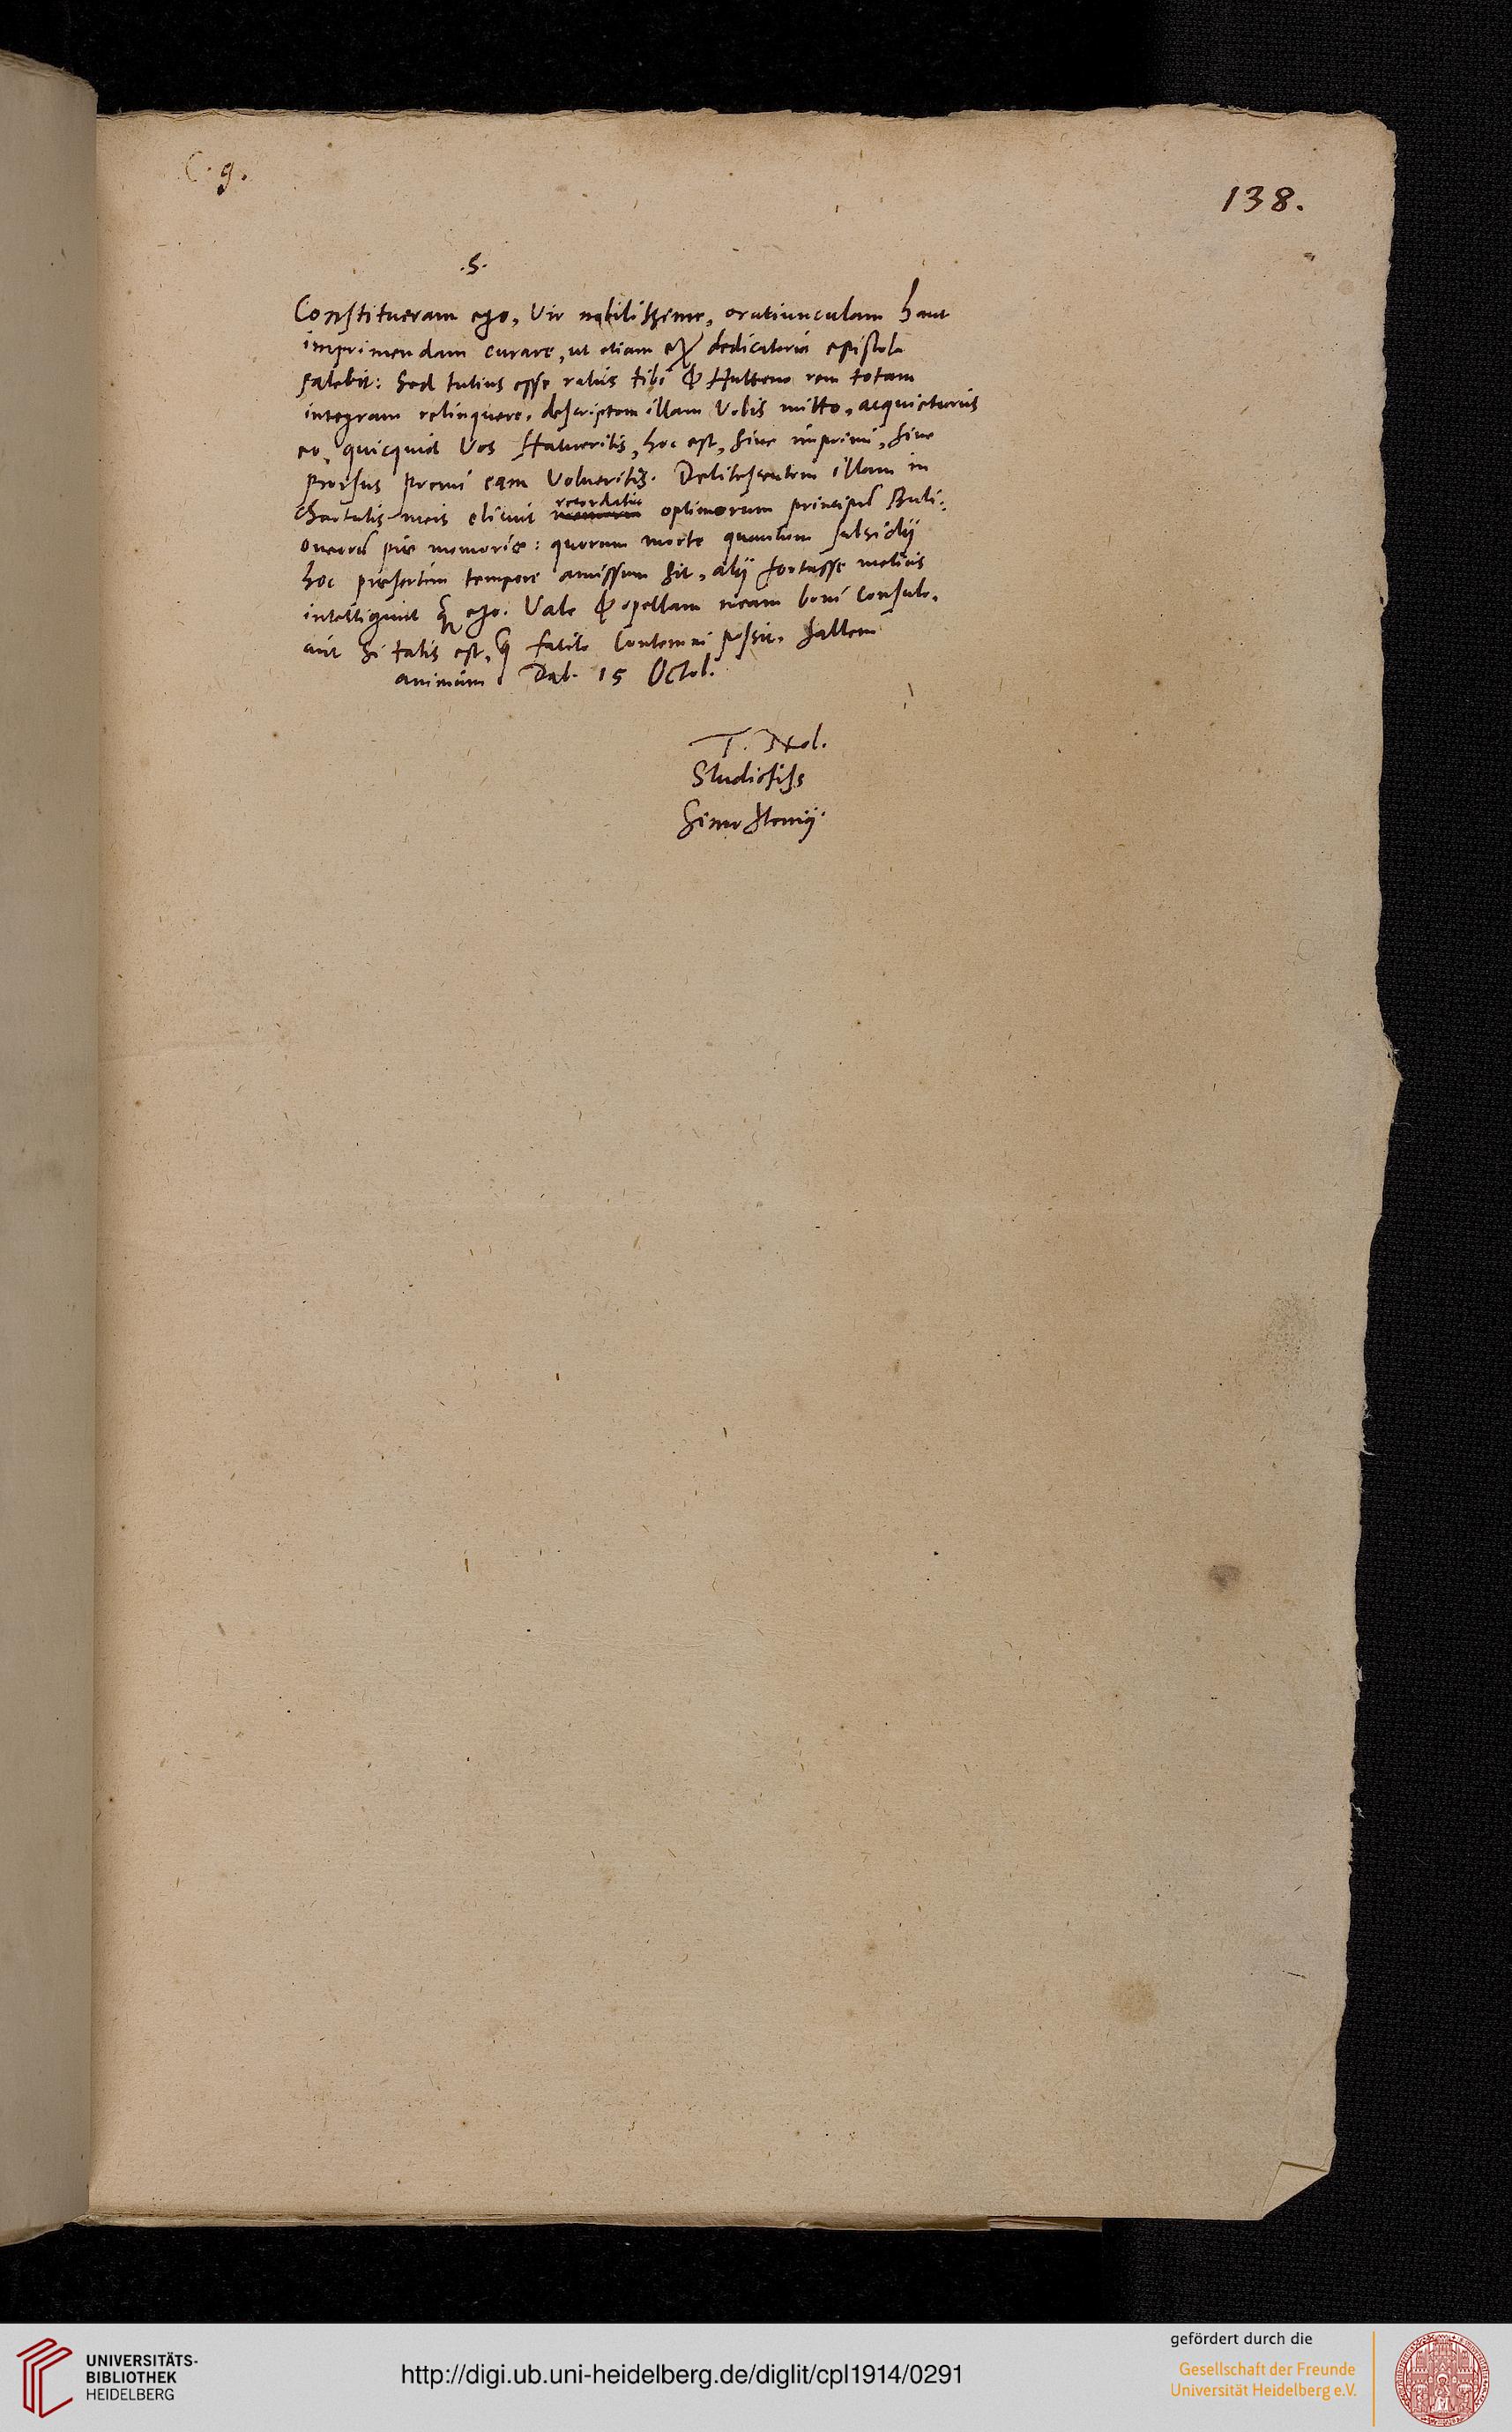 C. 9.
138.
.S.
Constitueram ego, Vir nobilissime, oratiunculam hanc
imprimendam curare, ut etiam ex dedicatoria epistola
patebit: Sed tutius esse ratus tibi & Hutteno rem totam
integram relinquere, descriptam illam Vobis mitto, acquieturus
eo, quicquid Vos Statueritis, hoc est, sive imprimi, sive
prorsus premi eam Volueritis. Delitescentem illam in
chartulis meis elicuit recordatio optimorum principum Buli:
oneorum piae memoriae: quorum morte quantum subsidij
hoc praesertim tempore amissum sit, alij fortasse melius
intelligunt quam ego. Vale & opellam meam boni consule,
aut si talis est, quae facile Contemni possit, saltem
animum. Dat. 15 Octob.
T. Nob.
Studiosiss
Simo Stenij.
UNIVERSITÄTS-
BIBLIOTHEK
HEIDELBERG
http://digi.ub.uni-heidelberg.de/diglit/cpl1914/0291
gefördert durch die
Gesellschaft der Freunde
Universität Heidelberg e.V.